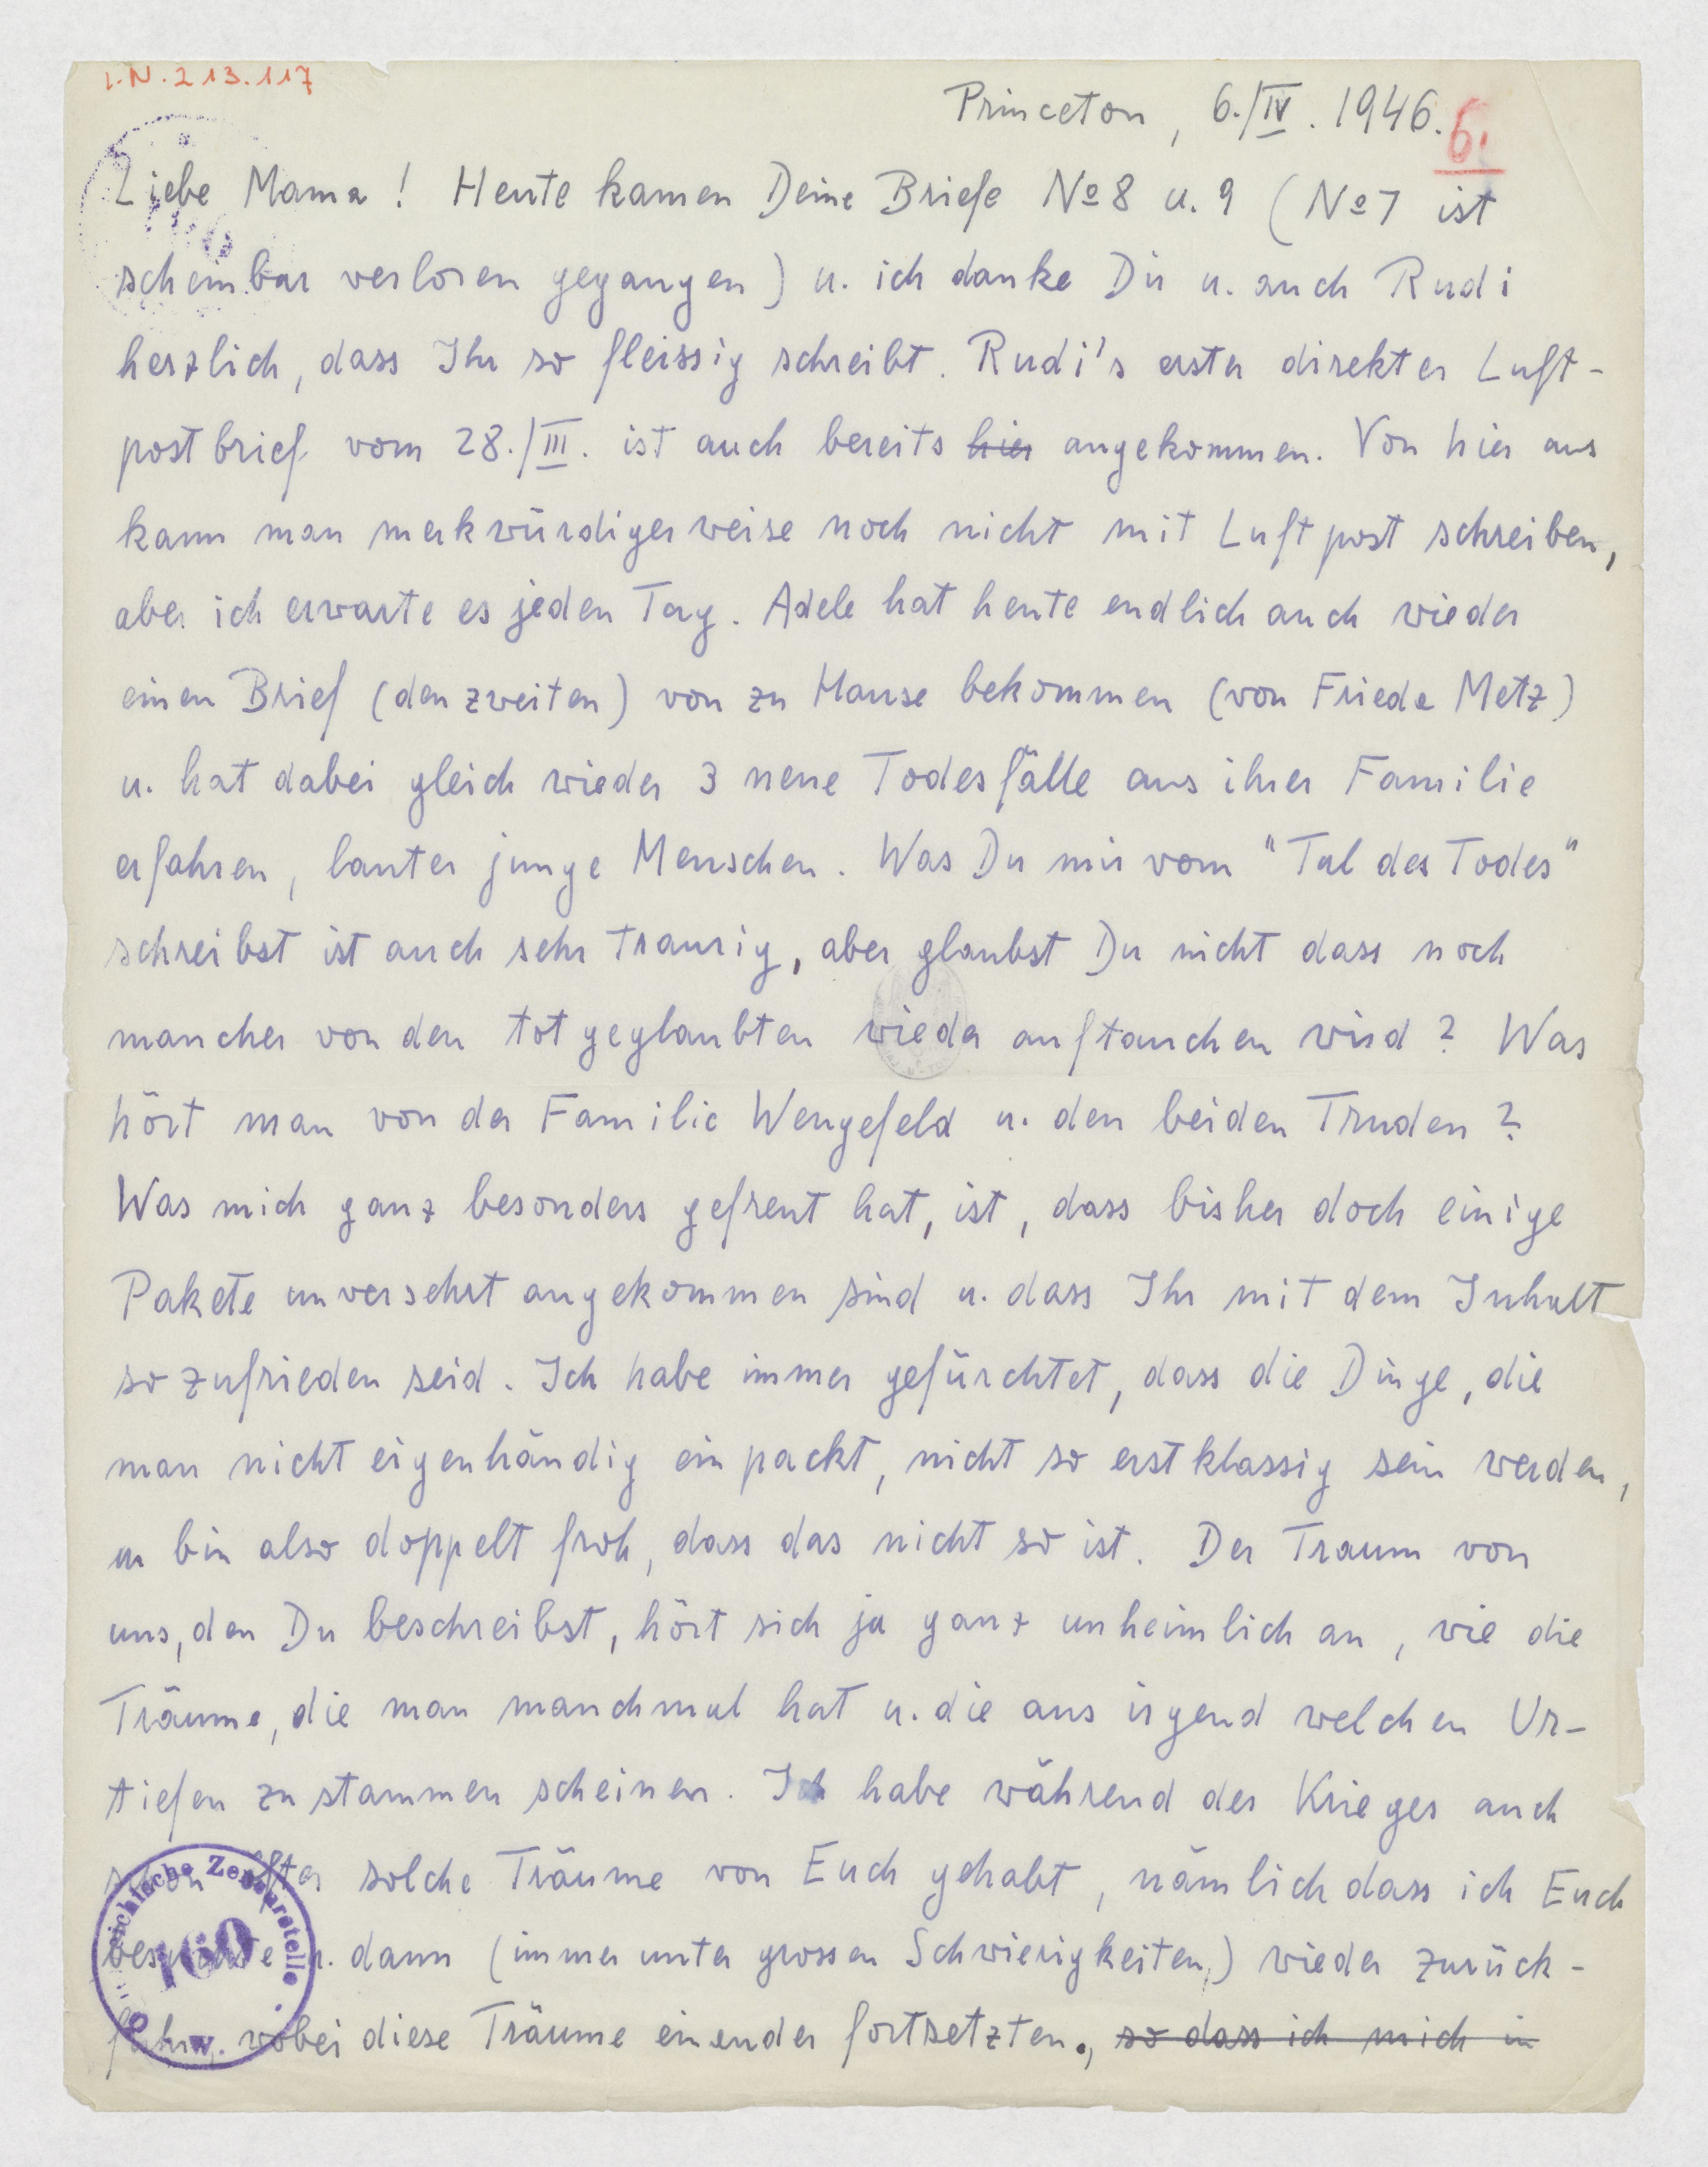 I.N. 213.117
Princeton, 6./IV. 1946.
6.
Liebe Mama! Heute kamen Deine Briefe No 8 u. 9 (No 7 ist
scheinbar verloren gegangen) u. ich danke Dir u. auch Rudi
herzlich, dass Ihr so fleissig schreibt. Rudi's erster direkter Luft-
postbrief vom 28./III. ist auch bereits hier angekommen. Von hier aus
kann man merkwürdigerweise noch nicht mit Luftpost schreiben,
aber ich erwarte es jeden Tag. Adele hat heute endlich auch wieder
einen Brief (den zweiten) von zu Hause bekommen (von Friede Metz)
u. hat dabei gleich wieder 3 neue Todesfälle aus ihrer Familie
erfahren, lauter junge Menschen. Was Du mir vom "Tal des Todes"
schreibst ist auch sehr traurig, aber glaubst Du nicht dass noch
mancher von den totgeglaubten wieder auftauchen wird? Was
hört man von der Familie Wengefeld u. den beiden Truden?
Was mich ganz besonders gefreut hat, ist, dass bisher doch einige
Pakete unversehrt angekommen sind u. dass Ihr mit dem Inhalt
so zufrieden seid. Ich habe immer gefürchtet, dass die Dinge, die
man nicht eigenhändig einpackt, nicht so erstklassig sein werden,
u bin also doppelt froh, dass das nicht so ist. Der Traum von
uns, den Du beschreibst, hört sich ja ganz unheimlich an, wie die
Träume, die man manchmal hat u. die aus irgend welchen Ur-
tiefen zu stammen scheinen. Ich habe während des Krieges auch
schon öfter solche Träume von Euch gehabt, nämlich dass ich Euch
besuchte u. dann (immer unter grossen Schwierigkeiten) wieder zurück-
fuhr, wobei diese Träume einander fortsetzten., so dass ich mich in
Österreichische Zensurstelle
160
W.